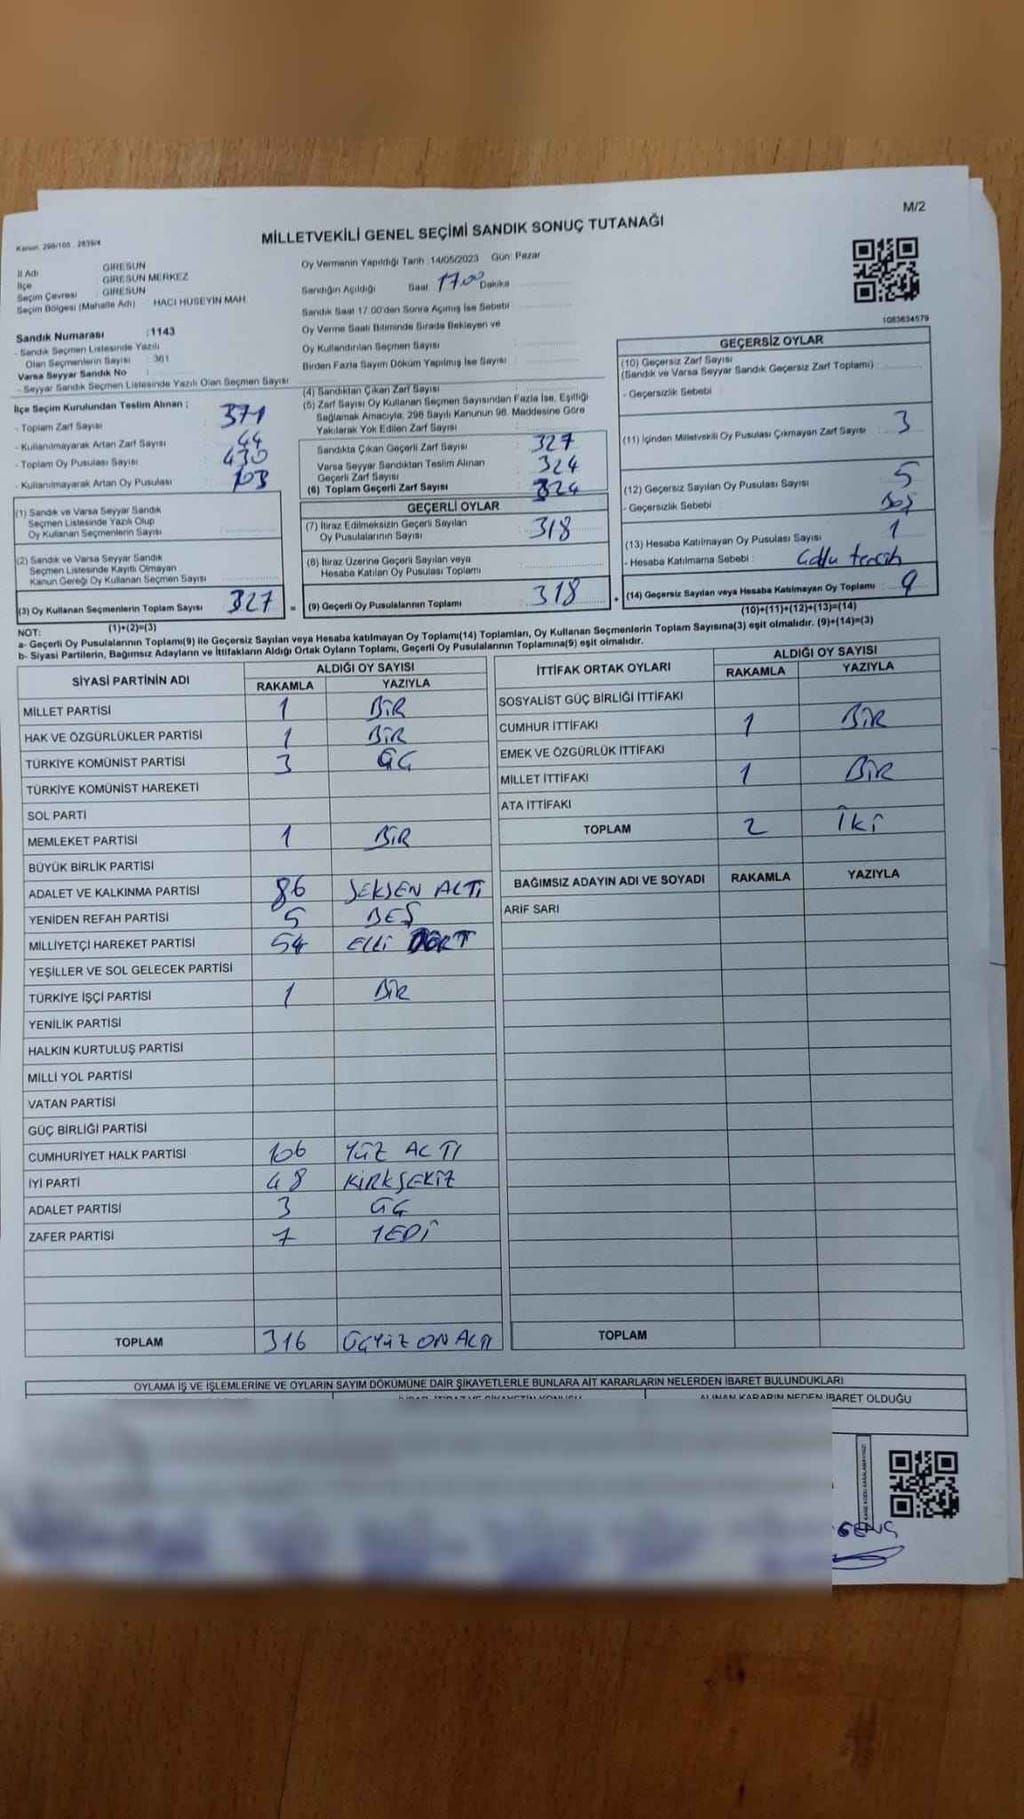 M/2
MİLLETVEKİLİ GENEL SEÇİMİ SANDIK SONUÇ TUTANAĞI
Kanun: 298/105 , 2839/4
İl Adı GİRESUN
İlçe GİRESUN MERKEZ
Seçim Çevresi GİRESUN
Seçim Bölgesi (Mahalle Adı) HACI HÜSEYİN MAH.
Oy Vermenin Yapıldığı Tarih :14/05/2023 Gün: Pazar
Sandığın Açıldığı Saat 17.00 Dakika
Sandık Saat 17:00'den Sonra Açılmış İse Sebebi
Oy Verme Saati Bitiminde Sırada Bekleyen ve
Oy Kullandırılan Seçmen Sayısı
Birden Fazla Sayım Döküm Yapılmış İse Sayısı
1083634579
Sandık Numarası :1143
- Sandık Seçmen Listesinde Yazılı
Olan Seçmenlerin Sayısı : 361
Varsa Seyyar Sandık No
- Seyyar Sandık Seçmen Listesinde Yazılı Olan Seçmen Sayısı
İlçe Seçim Kurulundan Teslim Alınan ;
- Toplam Zarf Sayısı 371
- Kullanılmayarak Artan Zarf Sayısı 44
- Toplam Oy Pusulası Sayısı 430
- Kullanılmayarak Artan Oy Pusulası 103
(1) Sandık ve Varsa Seyyar Sandık
Seçmen Listesinde Yazılı Olup
Oy Kullanan Seçmenlerin Sayısı
(2) Sandık ve Varsa Seyyar Sandık
Seçmen Listesinde Kayıtlı Olmayan
Kanun Gereği Oy Kullanan Seçmen Sayısı
(3) Oy Kullanan Seçmenlerin Toplam Sayısı 327
(1)+(2)=(3)
(4) Sandıktan Çıkan Zarf Sayısı
(5) Zarf Sayısı Oy Kullanan Seçmen Sayısından Fazla İse, Eşitliği
Sağlamak Amacıyla; 298 Sayılı Kanunun 98. Maddesine Göre
Yakılarak Yok Edilen Zarf Sayısı
Sandıkta Çıkan Geçerli Zarf Sayısı 327
Varsa Seyyar Sandıktan Teslim Alınan
Geçerli Zarf Sayısı 324
(6) Toplam Geçerli Zarf Sayısı 324
GEÇERLİ OYLAR
(7) İtiraz Edilmeksizin Geçerli Sayılan
Oy Pusulalarının Sayısı 318
(8) İtiraz Üzerine Geçerli Sayılan veya
Hesaba Katılan Oy Pusulası Toplamı
= (9) Geçerli Oy Pusulalarının Toplamı 318
GEÇERSİZ OYLAR
(10) Geçersiz Zarf Sayısı
(Sandık ve Varsa Seyyar Sandık Geçersiz Zarf Toplamı)
- Geçersizlik Sebebi :
(11) İçinden Milletvekili Oy Pusulası Çıkmayan Zarf Sayısı 3
(12) Geçersiz Sayılan Oy Pusulası Sayısı 5
- Geçersizlik Sebebi : Boş
(13) Hesaba Katılmayan Oy Pusulası Sayısı 1
- Hesaba Katılmama Sebebi : tercih
+ (14) Geçersiz Sayılan veya Hesaba Katılmayan Oy Toplamı 9
(10)+(11)+(12)+(13)=(14)
NOT:
a- Geçerli Oy Pusulalarının Toplamı(9) ile Geçersiz Sayılan veya Hesaba katılmayan Oy Toplamı(14) Toplamları, Oy Kullanan Seçmenlerin Toplam Sayısına(3) eşit olmalıdır. (9)+(14)=(3)
b- Siyasi Partilerin, Bağımsız Adayların ve İttifakların Aldığı Ortak Oyların Toplamı, Geçerli Oy Pusulalarının Toplamına(9) eşit olmalıdır.
SİYASİ PARTİNİN ADI ALDIĞI OY SAYISI
RAKAMLA YAZIYLA
MİLLET PARTİSİ 1 BİR
HAK VE ÖZGÜRLÜKLER PARTİSİ 1 BİR
TÜRKİYE KOMÜNİST PARTİSİ 3 ÜÇ
TÜRKİYE KOMÜNİST HAREKETİ
SOL PARTİ
MEMLEKET PARTİSİ 1 BİR
BÜYÜK BİRLİK PARTİSİ
ADALET VE KALKINMA PARTİSİ 86 SEKSEN ALTI
YENİDEN REFAH PARTİSİ 5 BEŞ
MİLLİYETÇİ HAREKET PARTİSİ 54 ELLİ DÖRT
YEŞİLLER VE SOL GELECEK PARTİSİ
TÜRKİYE İŞÇİ PARTİSİ 1 BİR
YENİLİK PARTİSİ
HALKIN KURTULUŞ PARTİSİ
MİLLİ YOL PARTİSİ
VATAN PARTİSİ
GÜÇ BİRLİĞİ PARTİSİ
CUMHURİYET HALK PARTİSİ 106 YÜZ ALTI
İYİ PARTİ 48 KIRKSEKİZ
ADALET PARTİSİ 3 ÜÇ
ZAFER PARTİSİ 7 YEDİ
TOPLAM 316 ÜÇYÜZ ONALTI
İTTİFAK ORTAK OYLARI ALDIĞI OY SAYISI
RAKAMLA YAZIYLA
SOSYALİST GÜÇ BİRLİĞİ İTTİFAKI
CUMHUR İTTİFAKI 1 BİR
EMEK VE ÖZGÜRLÜK İTTİFAKI
MİLLET İTTİFAKI 1 BİR
ATA İTTİFAKI
TOPLAM 2 İKİ
BAĞIMSIZ ADAYIN ADI VE SOYADI RAKAMLA YAZIYLA
ARİF SARI
TOPLAM
OYLAMA İŞ VE İŞLEMLERİNE VE OYLARIN SAYIM DÖKÜMÜNE DAİR ŞİKAYETLERLE BUNLARA AİT KARARLARIN NELERDEN İBARET BULUNDUKLARI
ALINAN KARARIN NEDEN İBARET OLDUĞU